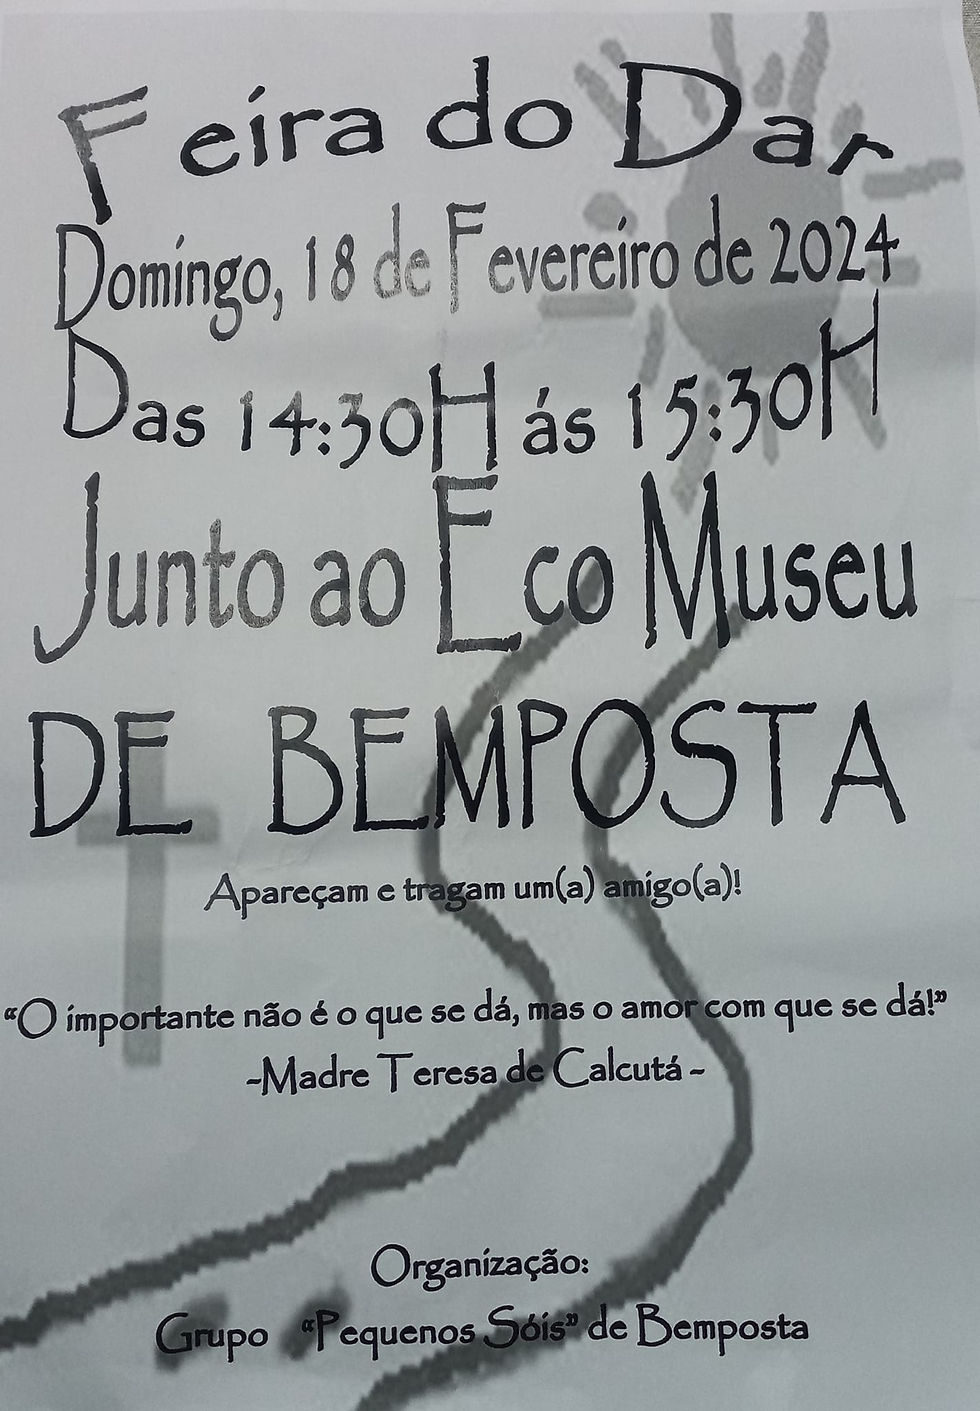 Feira do Dar
Domingo, 18 de Fevereiro de 2024
Das 14:30H ás 15:30H
Junto ao Eco Museu
DE BEMPOSTA
Apareçam e tragam um(a) amigo(a)!
“O importante não é o que se dá, mas o amor com que se dá!”
-Madre Teresa de Calcutá -
Organização:
Grupo “Pequenos Sóis” de Bemposta